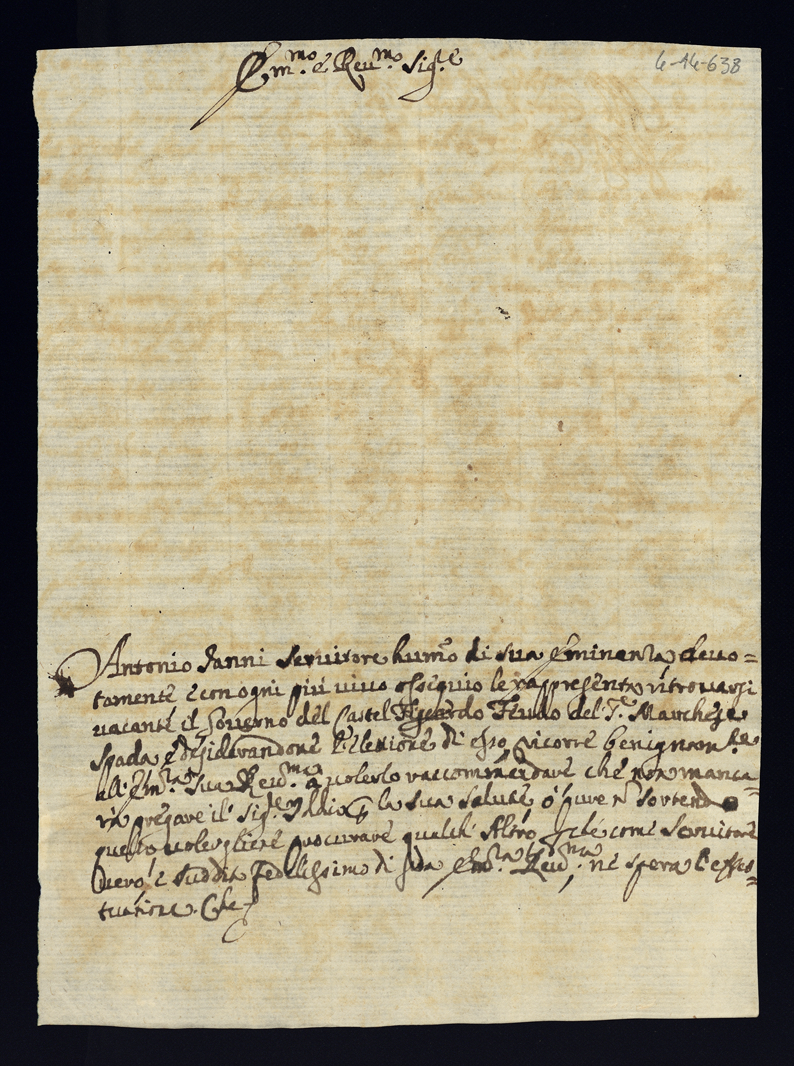 Em.mo e Reu.mo Sig.re
4-14-638
Antonio Ianni Seruitore hum.o di sua Eminenza deuo=
tamente e con ogni più uiuo ossequio le rappresenta ritrouarsi
uacante il Gouerno del Castel Feudo del S.r Marchese
Spada e desiderandone l'elezione di esso ricorre benignam.te
all' Em.za Sua Reu.ma a uolerlo raccommandare che non manca=
rà pregare il Sig.re Iddio la sua salute, ò pure sortendo
questo uolergliene procurare qualch' Altro, che come Seruitore
uero, e suddito fedelissimo di Em.za Reu.ma, ne spera l'effet=
tuazione. Che